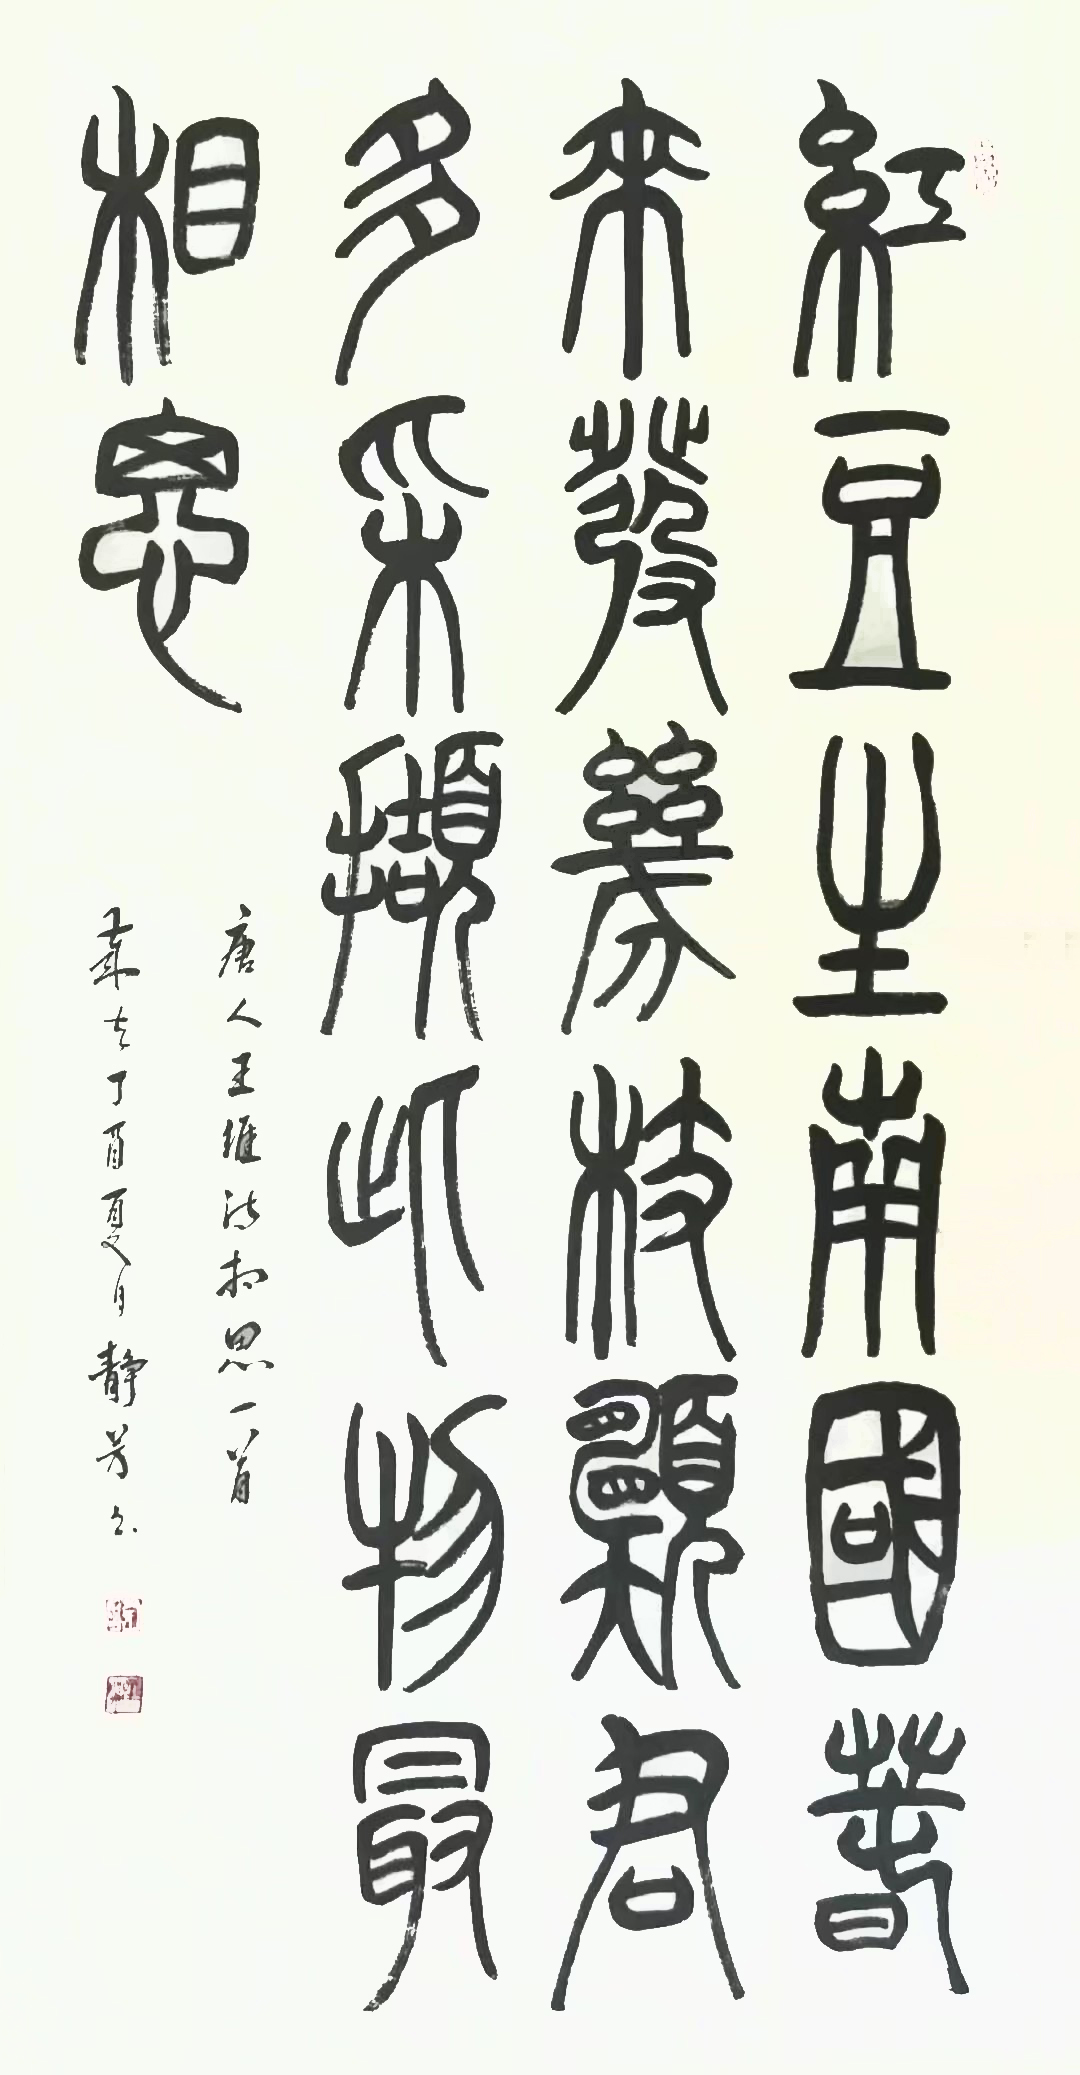 紅豆生南國春
來發幾枝願君
多采擷此物最
相思
唐人王維詩相思一首
歲在丁酉夏月靜芳书